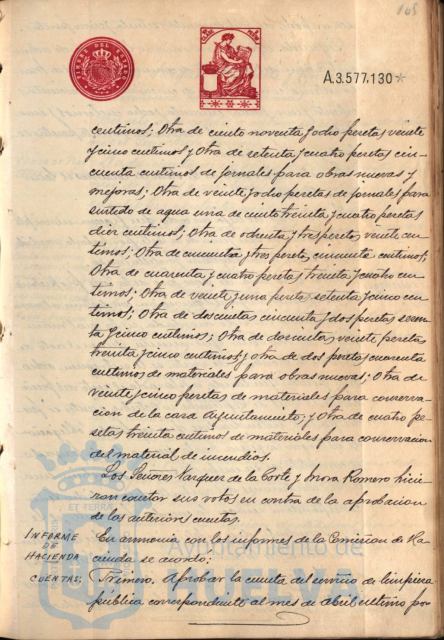 165
TIMBRE DEL ESTADO
A.3.577.130*
centimos; Otra de ciento noventa y ocho pesetas veinte
y cinco centimos y Otra de setenta y cuatro pesetas cin-
cuenta centimos de jornales para obras nuevas y
mejoras; Otra de veinte y ocho pesetas de jornales para
surtido de agua una de ciento treinta y cuatro pesetas
diez centimos; Otra de ochenta y tres pesetas veinte cen-
timos; Otra de cincuenta y tres pesetas cincuenta centimos;
Otra de cuarenta y cuatro pesetas treinta y cuatro cen-
timos; Otra de veinte y una peseta setenta y cinco cen-
timos; Otra de doscientas cincuenta y dos pesetas sesen-
ta y cinco centimos; Otra de doscientas veinte pesetas
treinta y cinco centimos y otra de dos pesetas cuarenta
centimos de materiales para obras nuevas; Otra de
veinte y cinco pesetas de materiales para conserva-
cion de la casa Ayuntamiento; y Otra de cuatro pe-
setas treinta centimos de materiales para conservacion
del material de incendios.
Los Señores Vazquez de la Corte y Mora Romero hicie-
ron constar sus votos en contra de la aprobacion
de las anteriores cuentas.
INFORME DE HACIENDA CUENTAS;
En armonia con los informes de la Comision de Ha-
cienda se acordo;
Primero. Aprobar la cuenta del servicio de limpieza
publica correspondiente al mes de Abril ultimo por
Ayuntamiento de
HUELVA